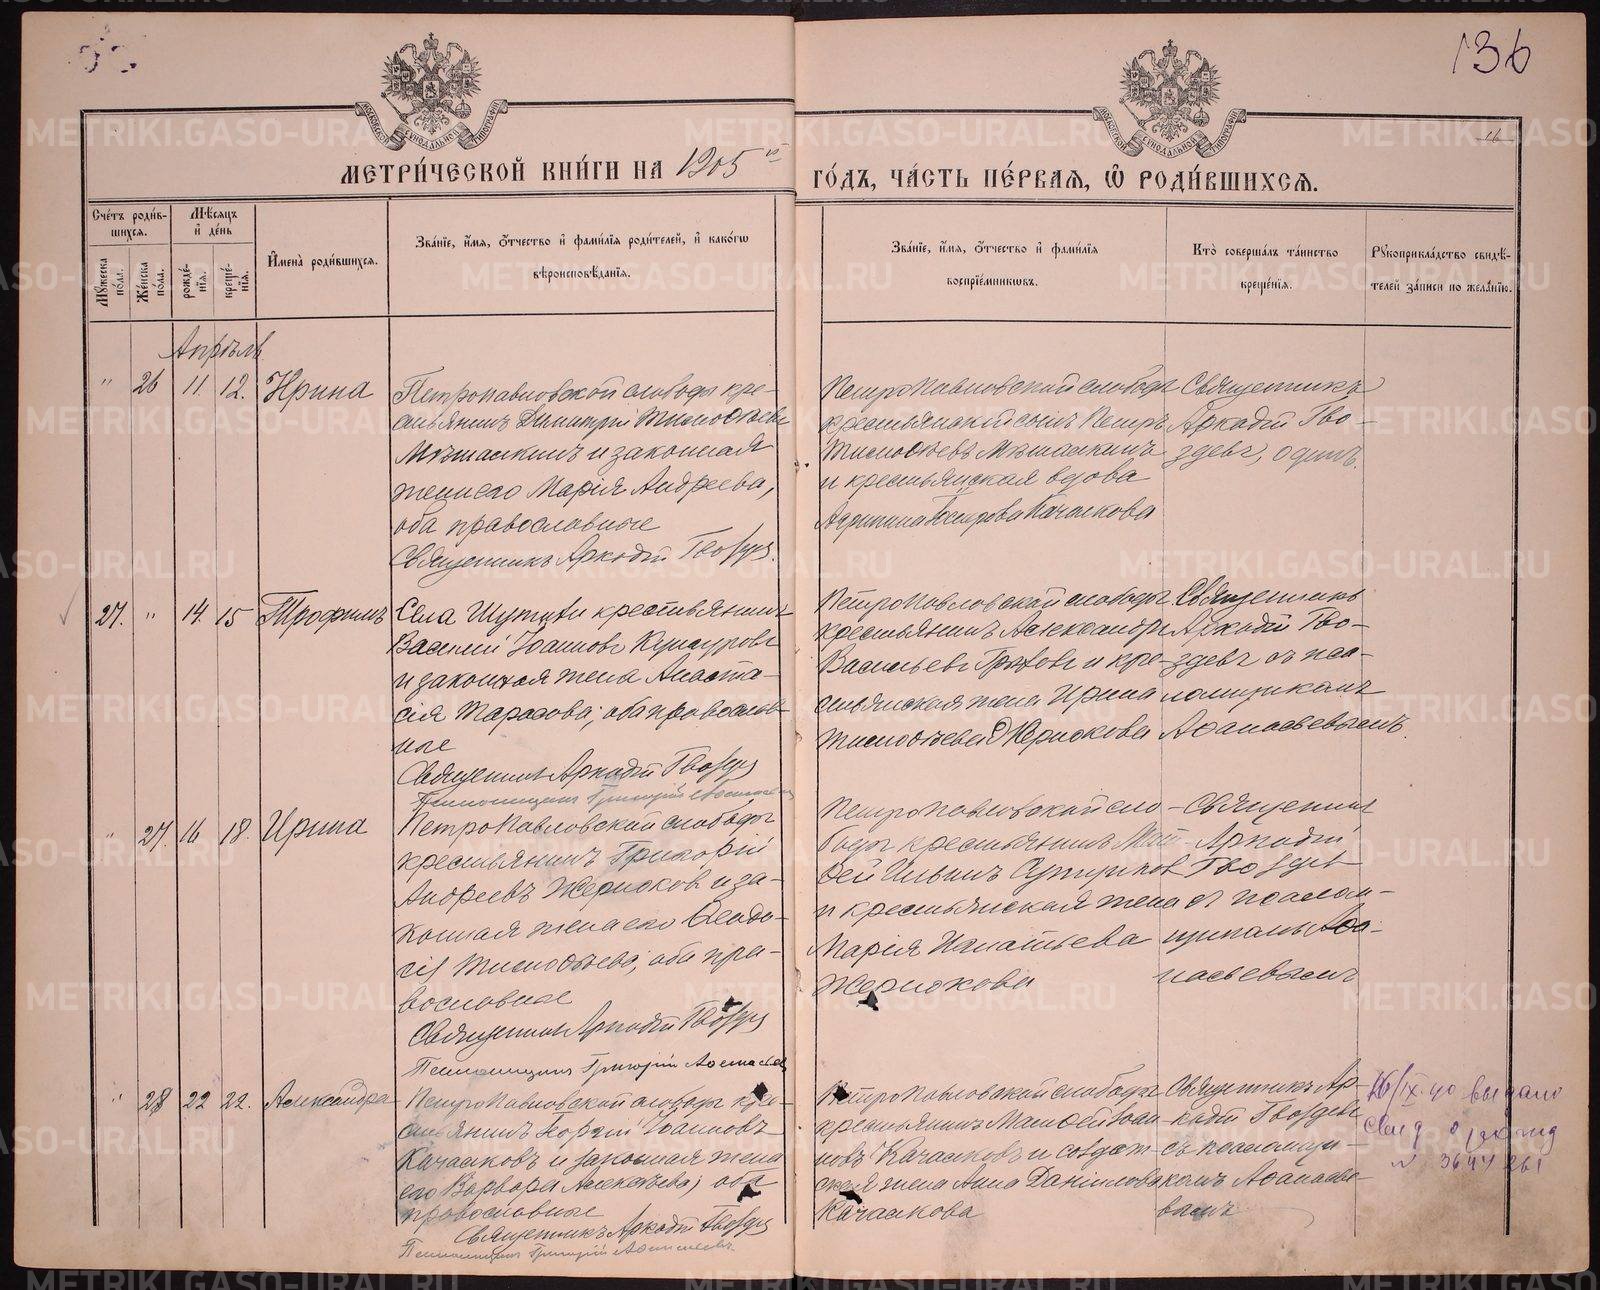 136
16
МЕТРИ́ЧЕСКОЙ КНИ́ГИ НА 1905 й
ГО́ДЪ, ЧА́СТЬ ПЕ́РВАЯ, Ѽ РОДИ́ВШИХСЯ.
Сче́тъ роди́в-
шихся.
Мѣ́сяцъ
и҆ де́нь
Мꙋ́жеска по́ла.
Же́нска по́ла.
рожде́-
нїя.
креще́-
нїя.
И҆мена̀ роди́вшихся.
Зва́нїе, и҆́мя, ѻ҆́тчество и҆ фами́лїя роди́телей, и҆ како́гѡ
вѣроисповѣ́данїя.
Зва́нїе, и҆́мя, ѻ҆́тчество и҆ фами́лїя
воспрїе́мникѡвъ.
Кто̀ соверша́лъ та́инство
креще́нїя.
Рꙋкоприкла́дство свидѣ́-
телей за́писи по жела́нїю.
Апрѣль
" 26 11. 12. Ирина
Петропавловской слободы кре-
стьянинъ Димитрій Тимоѳеевъ
и законная
жена его Марія Андреева,
оба православные
Священникъ Аркадій Гвоздевъ.
Петропавловской слободы
крестьянскій сынъ Петръ
Тимоѳеевъ
и крестьянская вдова
Агрипина Петрова Качалкова
Священникъ
Аркадій Гво-
здевъ, одинъ.
27. " 14. 15 Трофимъ
Села крестьянинъ
Василій Іоанновъ
и законная жена Анаста-
сія Тарасова; оба православ-
ные
Священникъ Аркадій Гвоздевъ
Псаломщикъ Григорій Аѳанасьевъ
Петропавловской слободы
крестьянинъ Александръ
Васильевъ и кре-
стьянская жена Ирина
Тимоѳеева Жернокова
Священникъ
Аркадій Гво-
здевъ съ пса-
ломщикомъ
Аѳанасьевымъ.
" 27. 16 18. Ирина
Петропавловской слободы
крестьянинъ Григорій
Андреевъ Жерноковъ и за-
конная жена его Ѳеодо-
сія Тимоѳеева, оба пра-
вославные
Священникъ Аркадій Гвоздевъ
Псаломщикъ Григорій Аѳанасьевъ
Петропавловской сло-
боды крестьянинъ Мат-
ѳей Ильинъ
и крестьянская жена
Марія Игнатьева
Жернокова
Священникъ
Аркадій
Гвоздевъ
съ псалом-
щикомъ Аѳа-
насьевымъ
" 28 22 22. Александра
Петропавловской слободы кре-
стьянинъ Георгій Іоанновъ
Качалковъ и законная жена
его Варвара Алексѣева; оба
православные
Священникъ Аркадій Гвоздевъ
Псаломщикъ Григорій Аѳанасьевъ.
Петропавловской слободы
крестьянинъ Матѳей Іоан-
новъ Качалковъ и солдат-
ская жена Анна Даніилова
Качалкова
Священникъ Ар-
кадій Гвоздевъ
съ псаломщи-
комъ Аѳанасье-
вымъ
16/IX-40 выдано
свид о рожд
№ 3644261
METRIKI.GASO-URAL.RU